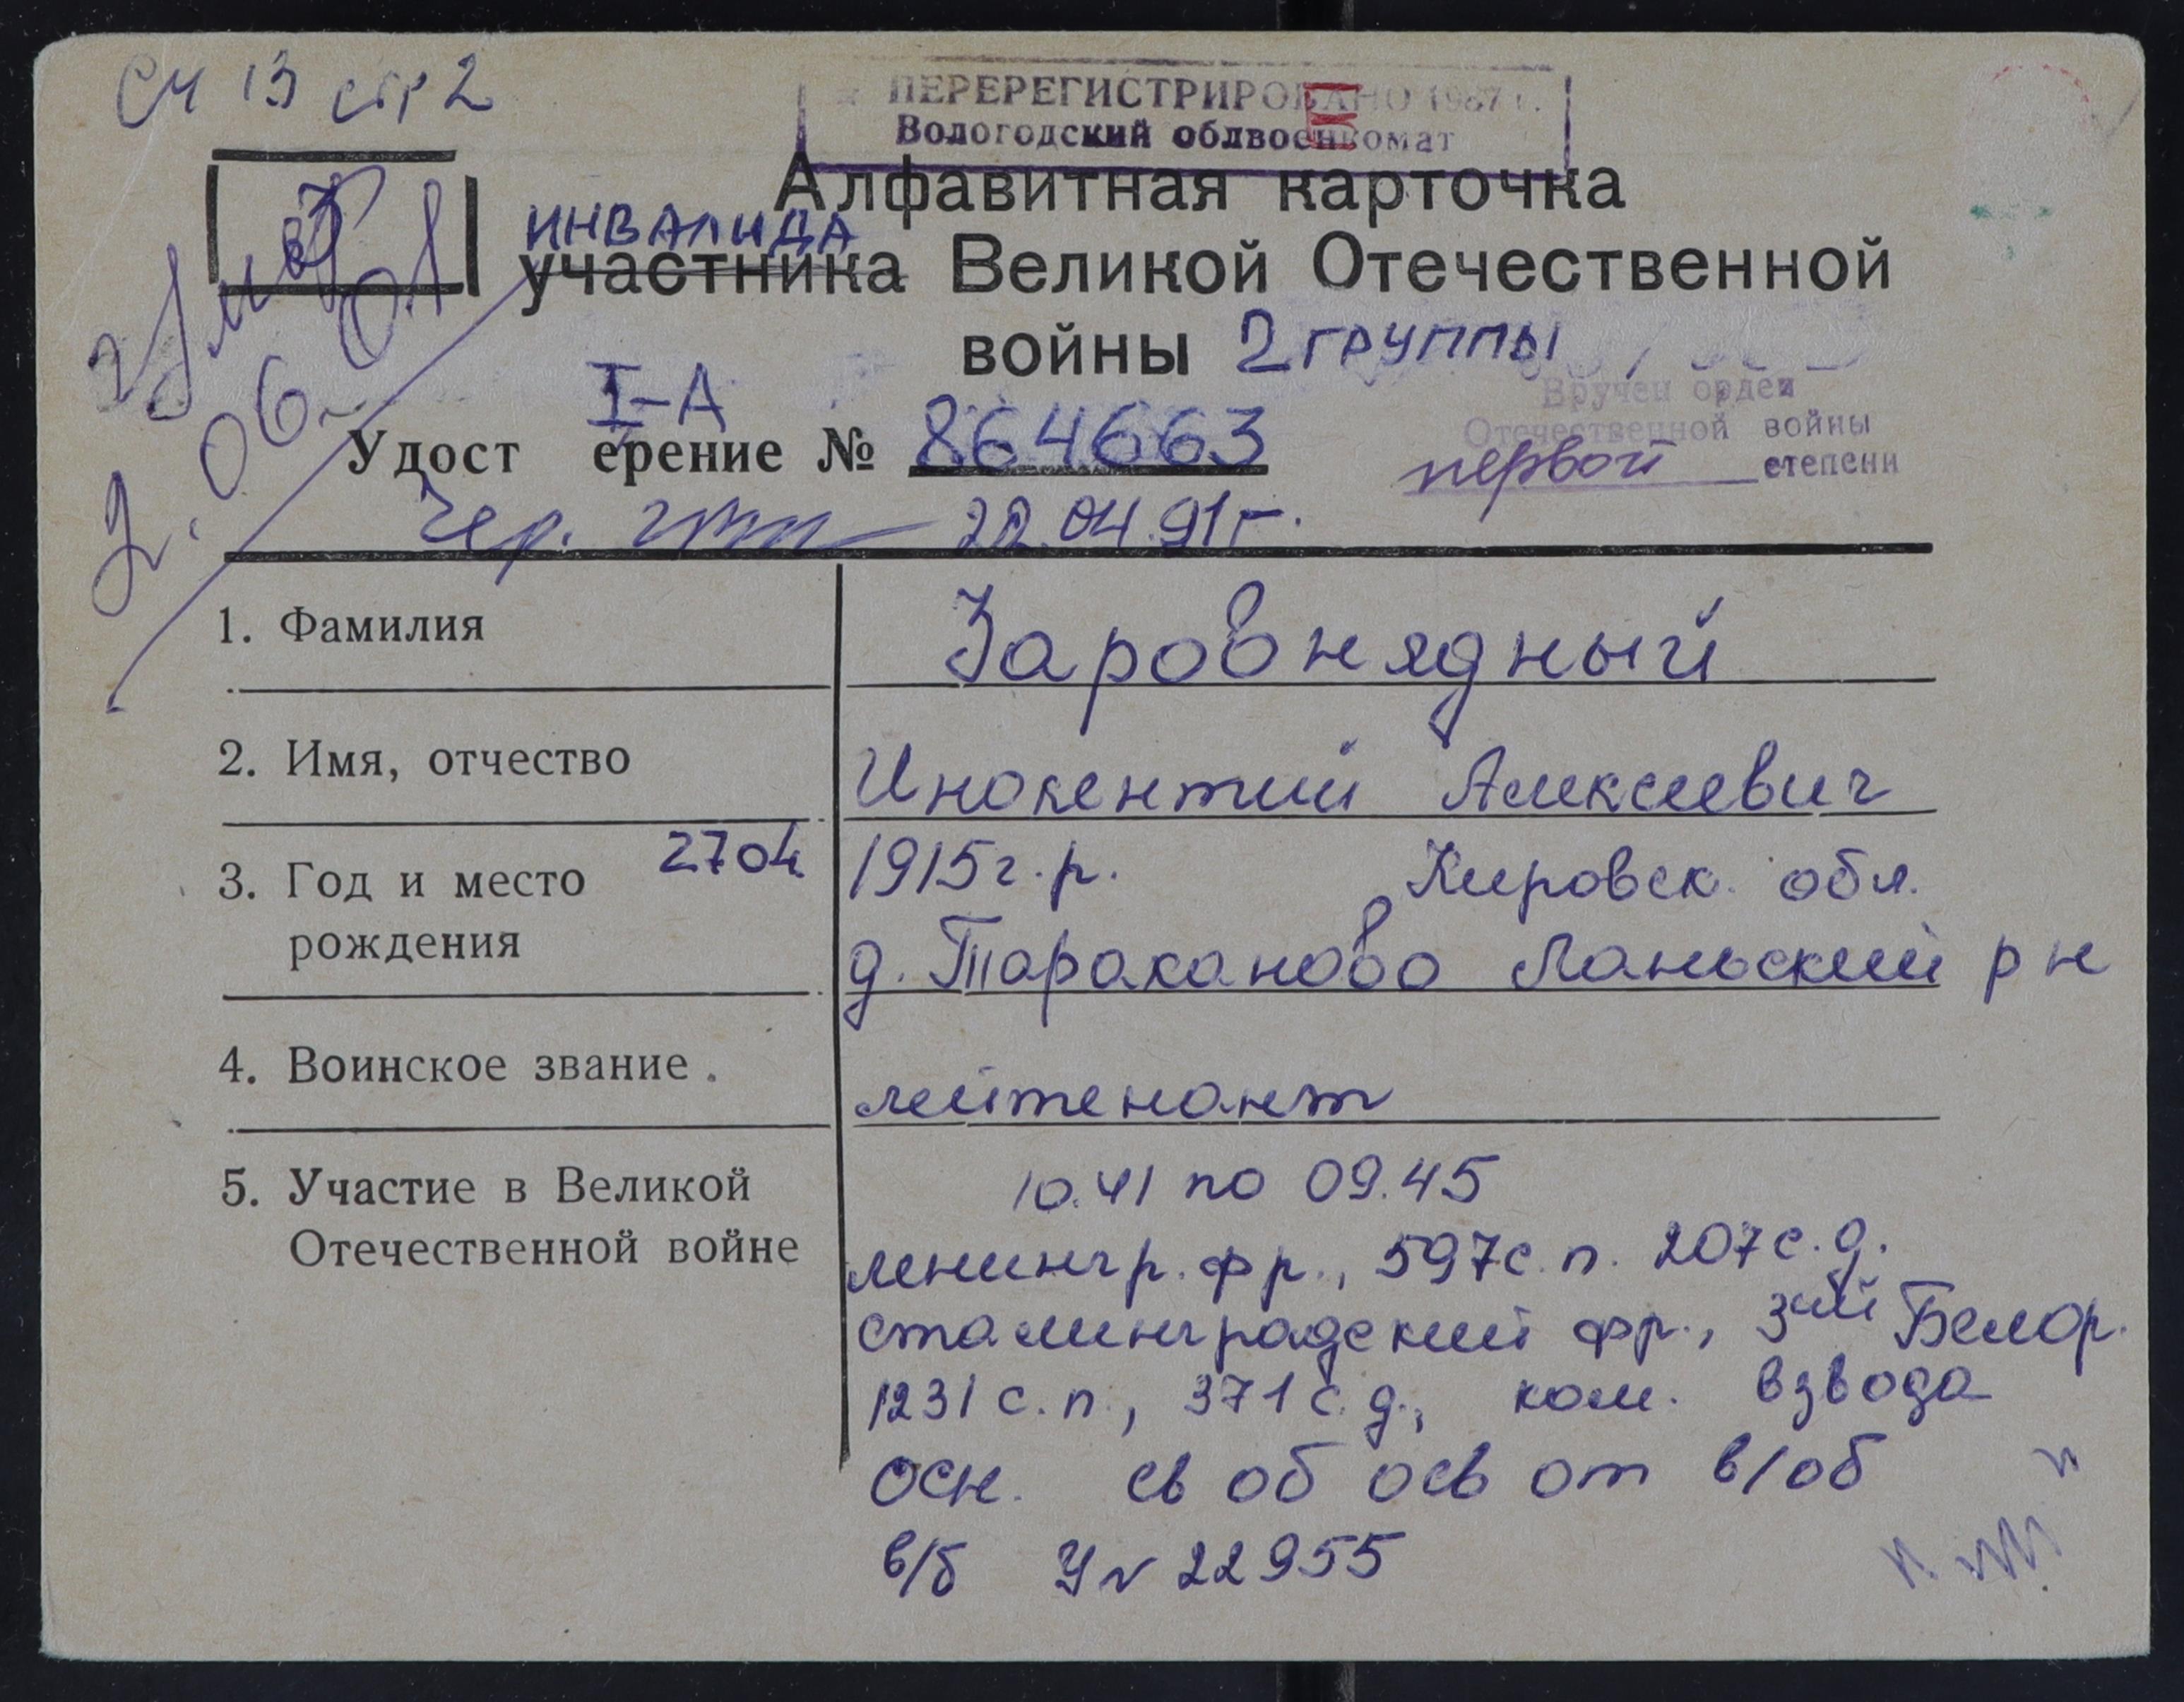 СЧ 13 стр 2
ПЕРЕРЕГИСТРИРОВАНО 1987 г.
Вологодский облвоенкомат
Алфавитная карточка
ИНВАЛИДА
участника Великой Отечественной
войны 2 группы
I-А
Удост ерение № 864663
Вручен орден
Отечественной войны
первой степени
22.04.91г.
умер
2.06.01
1. Фамилия Заровнядный
2. Имя, отчество Инокентий Алексеевич
3. Год и место 2704 1915г.р. Кировск. обл.
рождения д. Тараканово Ланьский р н
4. Воинское звание лейтенант
5. Участие в Великой 10.41 по 09.45
Отечественной войне ленингр. фр., 597с.п. 207с.д.
сталинградский фр., 3ий Белор.
1231 с.п., 371 с.д., ком. взвода
осн. св об осв от в/об
в/б У№ 22955